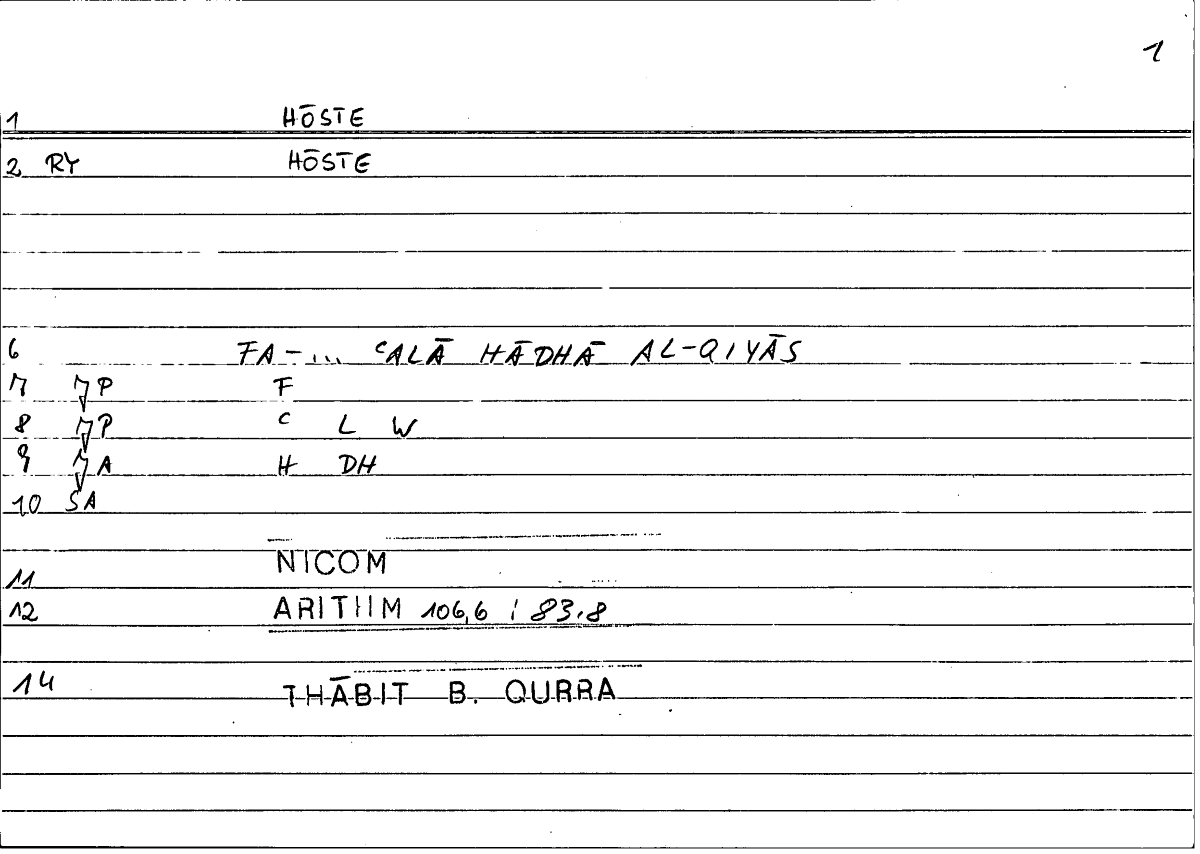 1
1 HŌSTE
2 RY HŌSTE
6 FA-... ʿALĀ HĀDHĀ AL-QIYĀS
7 P F
8 P ʿ L W
9 A H DH
10 SA
11 NICOM
12 ARITHM 106,6 ; 83.8
14 THĀBIT B. QURRA